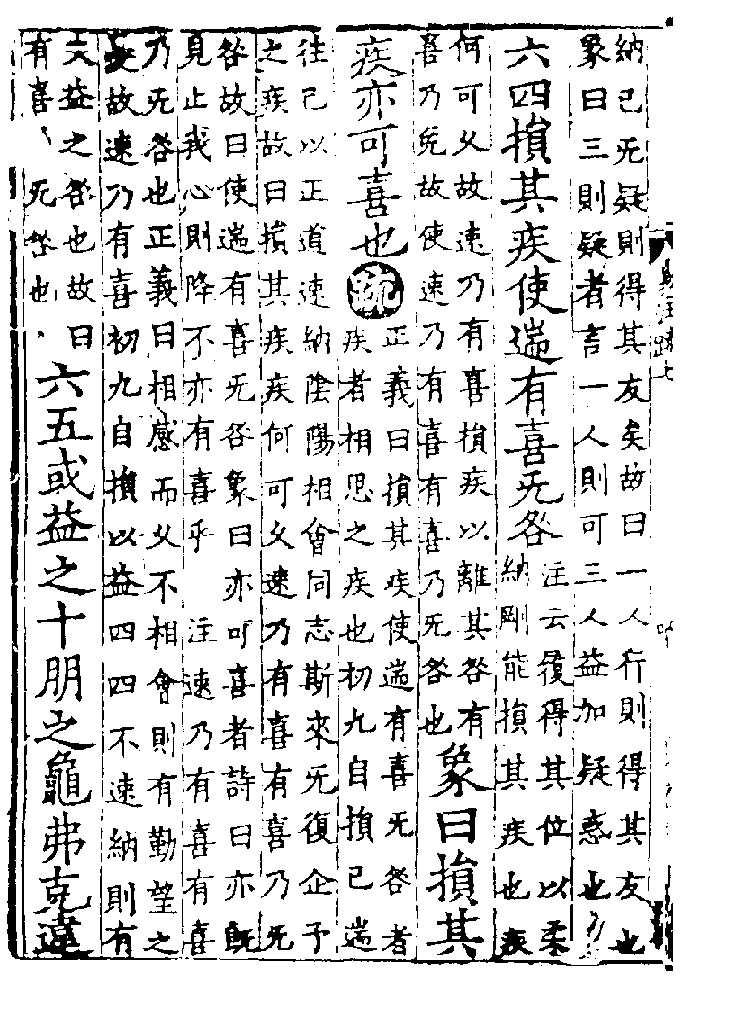 納已无疑則得其友矣故曰一人行則得其友也
象曰三則疑者言一人則可三人益加疑惑也
六四損其疾使遄有喜无咎
注云復得其位以柔
納剛能損其疾也疾
何可久故速乃有喜損疾以離其咎有
喜乃免故使速乃有喜有喜乃无咎也
象曰損其
疾亦可喜也疏
正義曰損其疾使遄有喜无咎者
疾者相思之疾也初九自損已遄
往已以正道速納陰陽相會同志斯來无復企予
之疾故曰損其疾疾何可久速乃有喜有喜乃无
咎故曰使遄有喜无咎象曰亦可喜者詩曰亦既
見止我心則降不亦有喜乎 注速乃有喜有喜
乃无咎也正義曰相感而久不相會則有勤望之
疾故速乃有喜初九自損以益四四不速納則有
失益之咎也故曰
有喜 无咎也
六五或益之十朋之龜弗克違